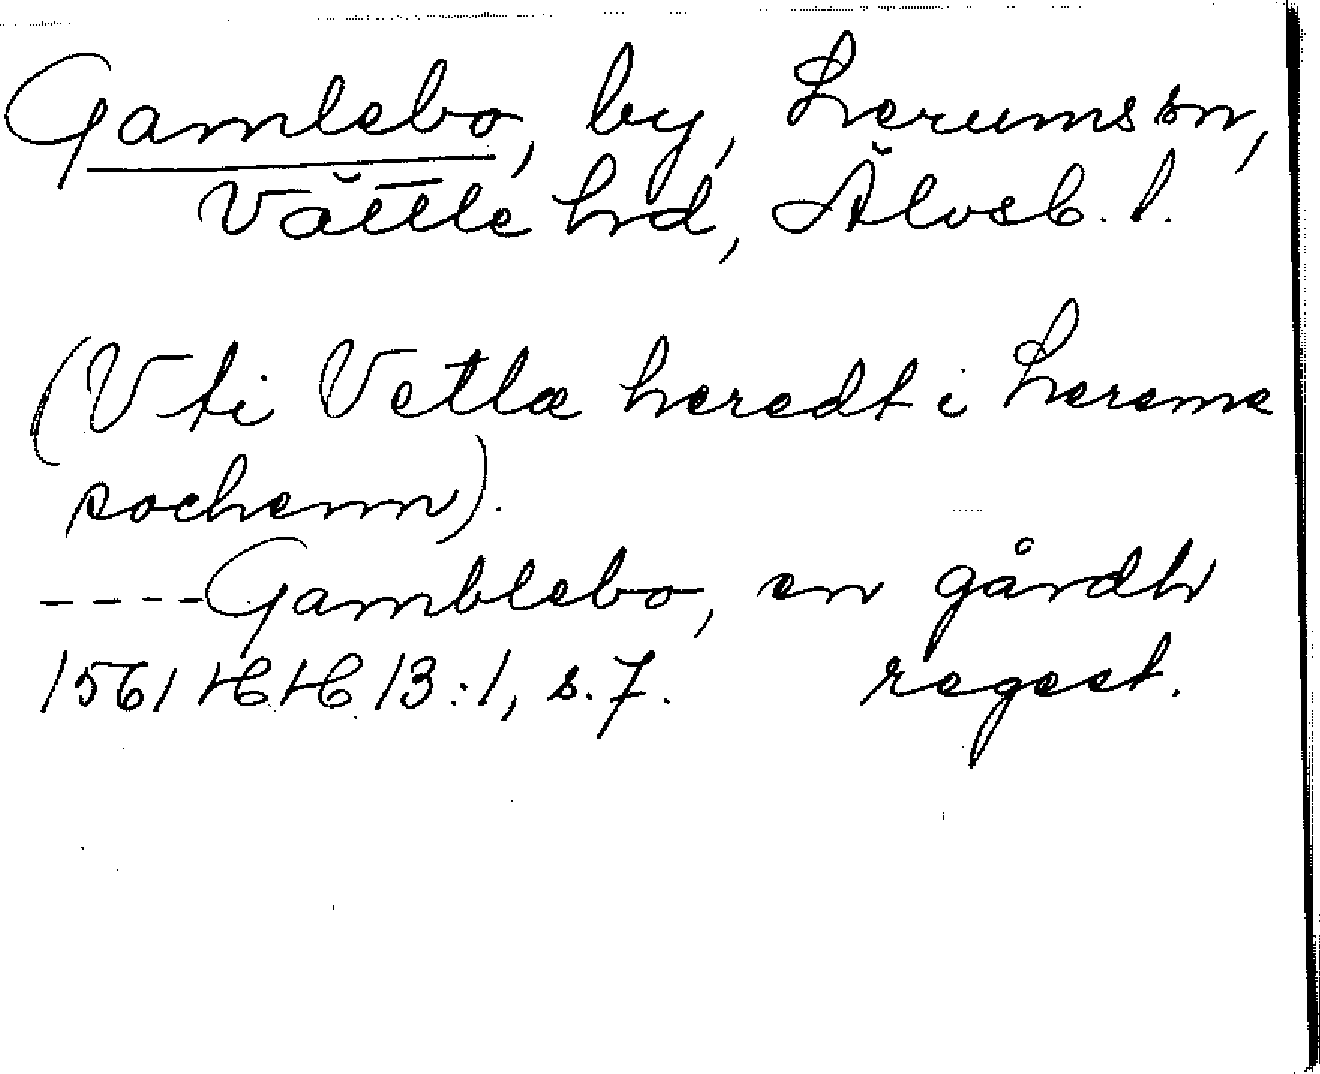 Gamlebo, by, Lerums sn,
Vättle hrd, Älvsb. l.
(Vti Vetla heredt i Lereme
sochenn).
----Gamblebo, en gårdh
1561 HH 13:1, s. 7. regest.